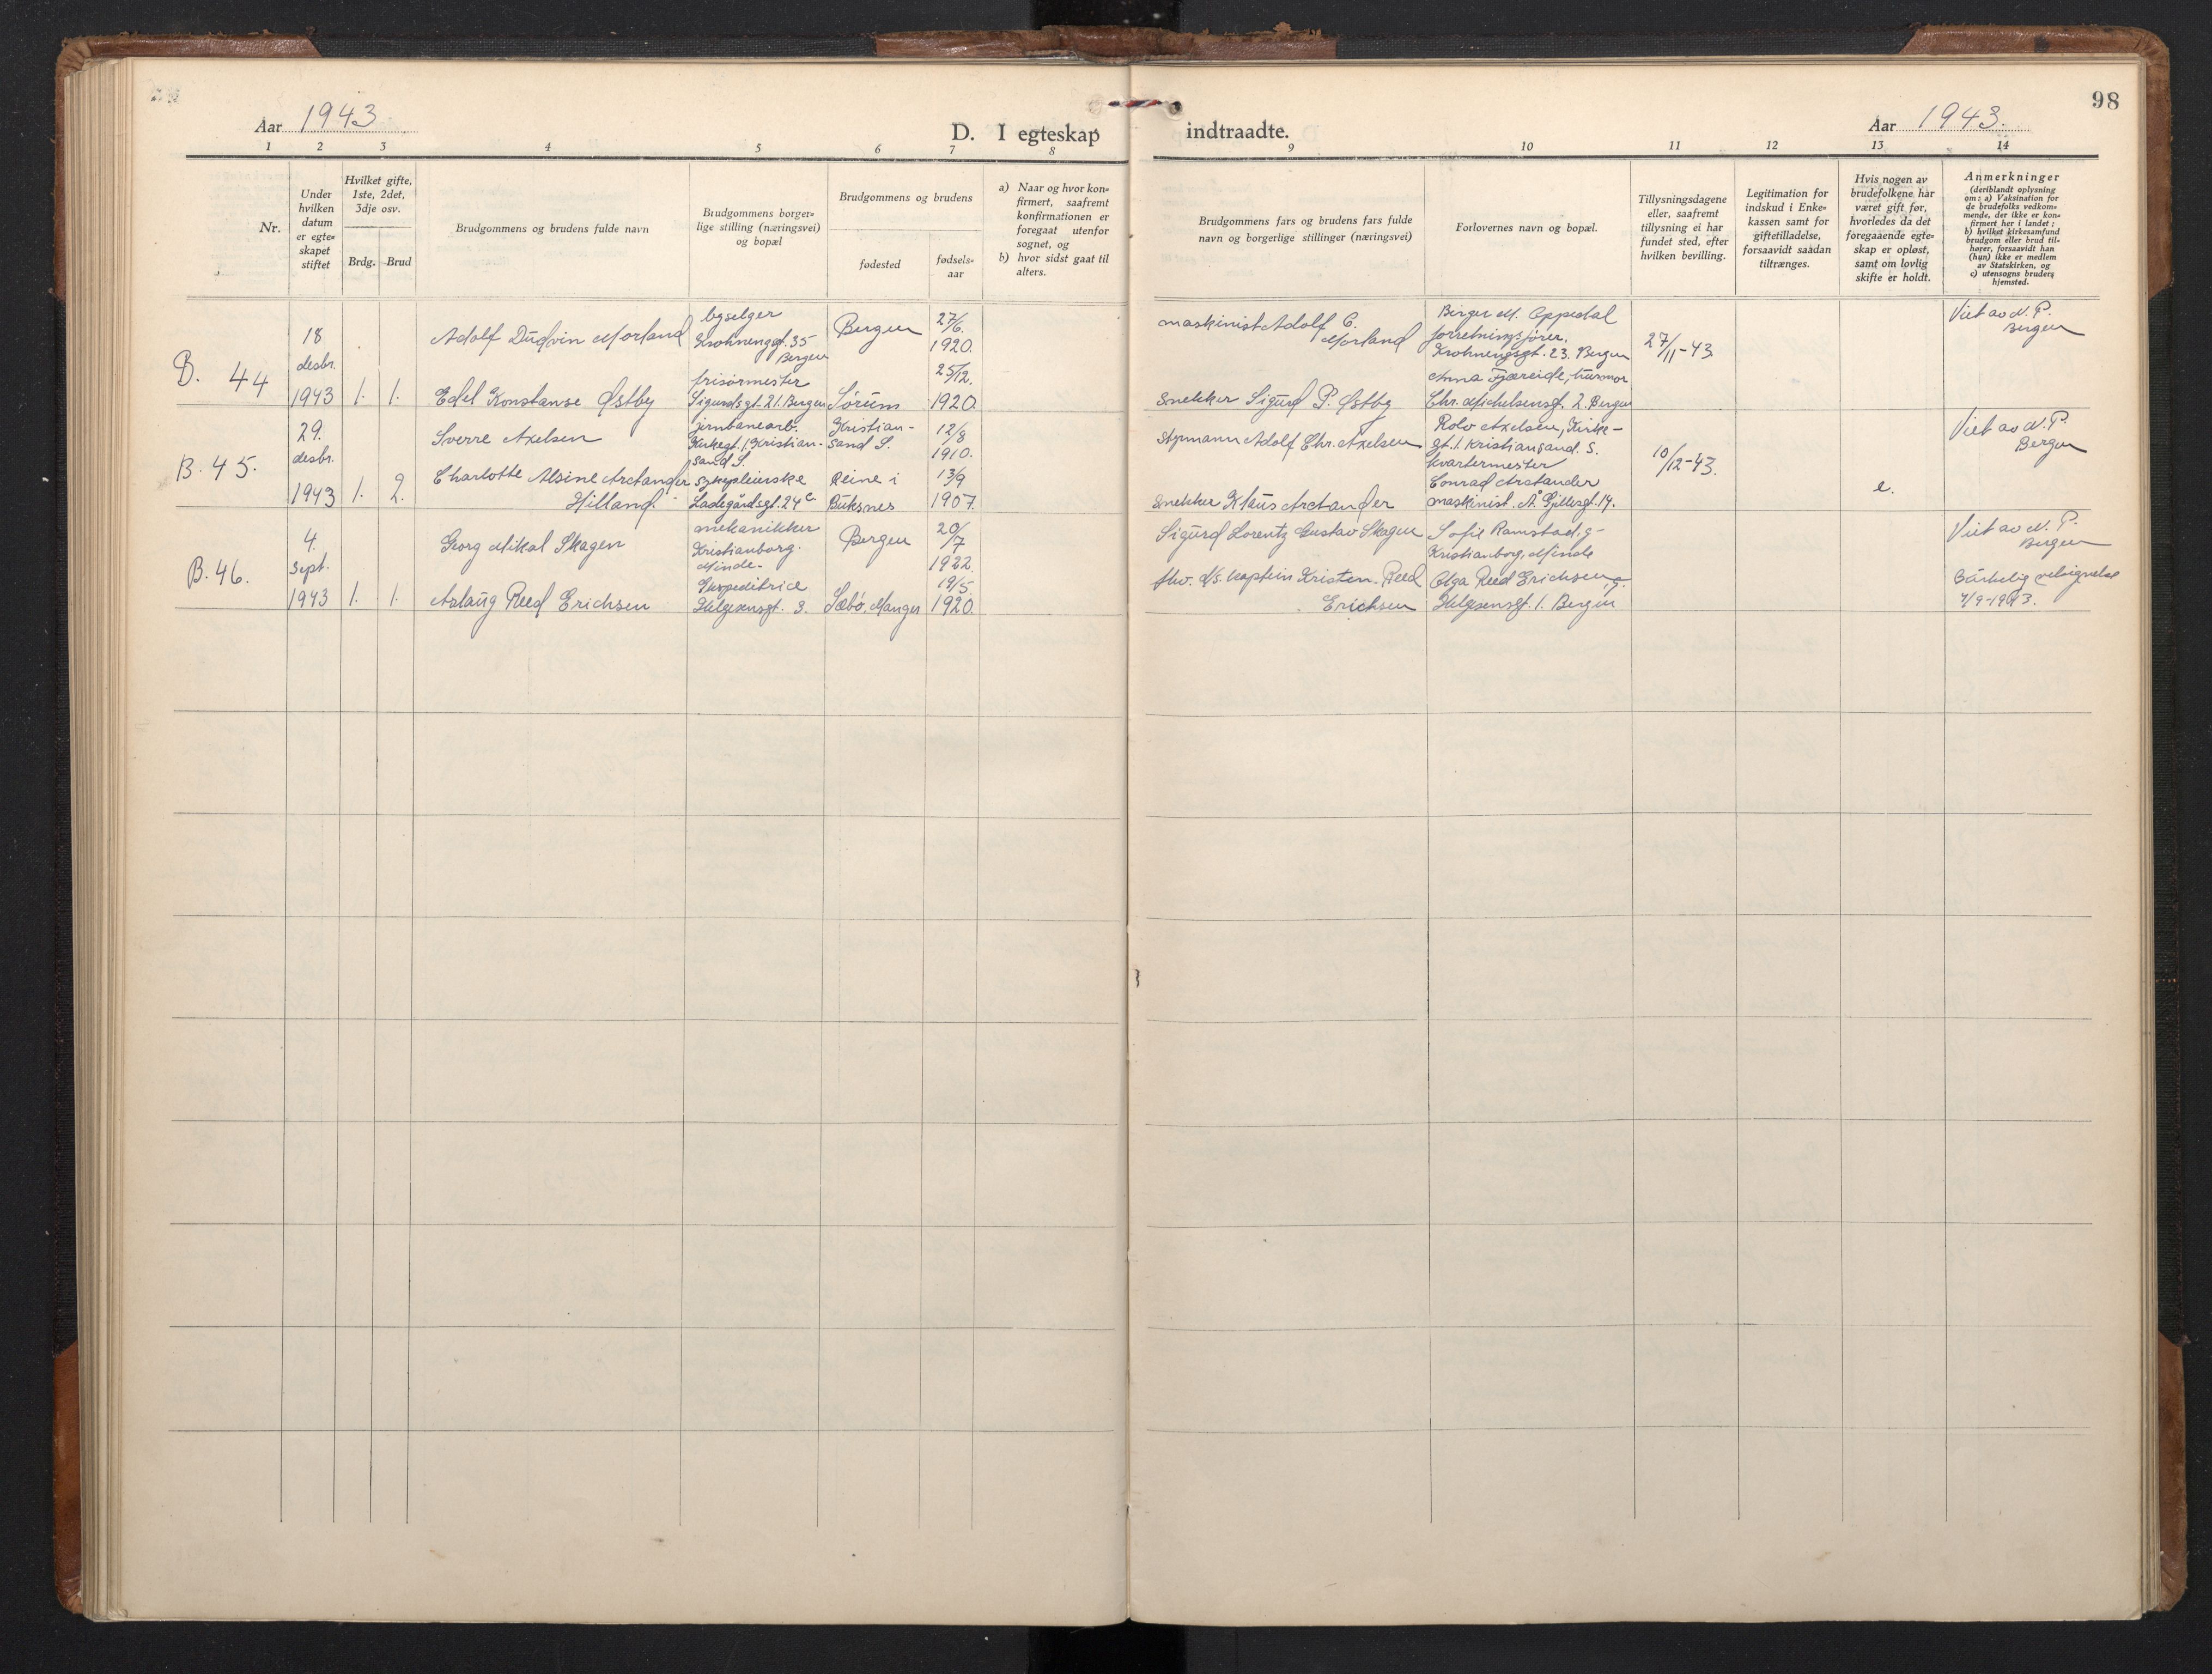 Aar 1943
D. I egteskap
indtraadte.
Aar 1943.
98
1 2 3 4 5 6 7 8
9 10 11 12 13 14
Nr.
Under hvilken datum er egte-skapet stiftet
Hvilket gifte, 1ste, 2det, 3dje osv.
Brdg. Brud
Brudgommens og brudens fulde navn
Brudgommens borger-lige stilling (næringsvei) og bopæl
Brudgommens og brudens
fødested
fødsels-aar
a) Naar og hvor kon-firmert, saafremt konfirmationen er foregaat utenfor sognet, og
b) hvor sidst gaat til alters.
Brudgommens fars og brudens fars fulde navn og borgerlige stillinger (næringsvei)
Forlovernes navn og bopæl.
Tillysningsdagene eller, saafremt tillysning ei har fundet sted, efter hvilken bevilling.
Legitimation for indskud i Enke-kassen samt for giftetilladelse, forsaavidt saadan tiltrænges.
Hvis nogen av brudefolkene har været gift før, hvorledes da det foregaaende egte-skap er opløst, samt om lovlig skifte er holdt.
Anmerkninger
(deriblandt oplysning om: a) Vaksination for de brudefolks vedkom-mende, der ikke er kon-firmert her i landet; b) hvilket kirkesamfund brudgom eller brud til-hører, forsaavidt han (hun) ikke er medlem av Statskirken, og c) utensogns bruders hjemsted.
B. 44
18
desbr.
1943
1. 1.
Adolf Dudvin Morland
Edel Konstanse Østby
byselger
Krohnengt. 35
Bergen
frisørmester
Sigurdsgt. 21. Bergen
Bergen
Sørum
27/6.
1920.
25/12.
1920.
maskinist Adolf C.
Morland
Snekker Sigurd P. Østby
Birger M. Oppedal
forretningsfører.
Krohnengsgt. 23. Bergen
Anna Fjæreide, husmor
Chr. Michelsensgt. 2. Bergen
27/11-43
Viet av N. P.
Bergen
B. 45.
29.
desbr.
1943
1. 2.
Sverre Axelsen
Charlotte Alsine Arctander
Hilland.
jernbanearb.
Kirkegt. 1 Kristian-
sand S.
sykepleierske
Ladegårdsgt. 24 c
Kristian-
sand S.
Reine i
Buksnes
12/8
1910.
13/9
1907.
Styrmann Adolf Chr. Axelsen
Snekker Klaus Arctander
Rolv Axelsen, Kirke-
gt. 1. Kristiansand. S.
kvartermester
Conrad Arctander
maskinist. A. Gjillesgt. 14.
10/12-43.
e.
Viet av N. P.
Bergen
B. 46.
4.
Sept.
1943
1. 1.
Georg Mikal Skagen
Aslaug Reed Erichsen
mekanikker
Kristianborg.
Minde-
Ekspeditrice
Helgesensgt. 3.
Bergen
Sæbø, Manger
20/7
1922.
19/5.
1920.
Sigurd Lorentz Gustav Skagen
fhv. D/s. kaptein Kristen. Reed
Erichsen
Sofie Ramstad, g-
Kristianborg, Minde
Olga Reed Erichsen, g-
Helgesensgt. 1. Bergen
Viet av N. P.
Bergen
Särkelig velsignelse
4/9-1943.